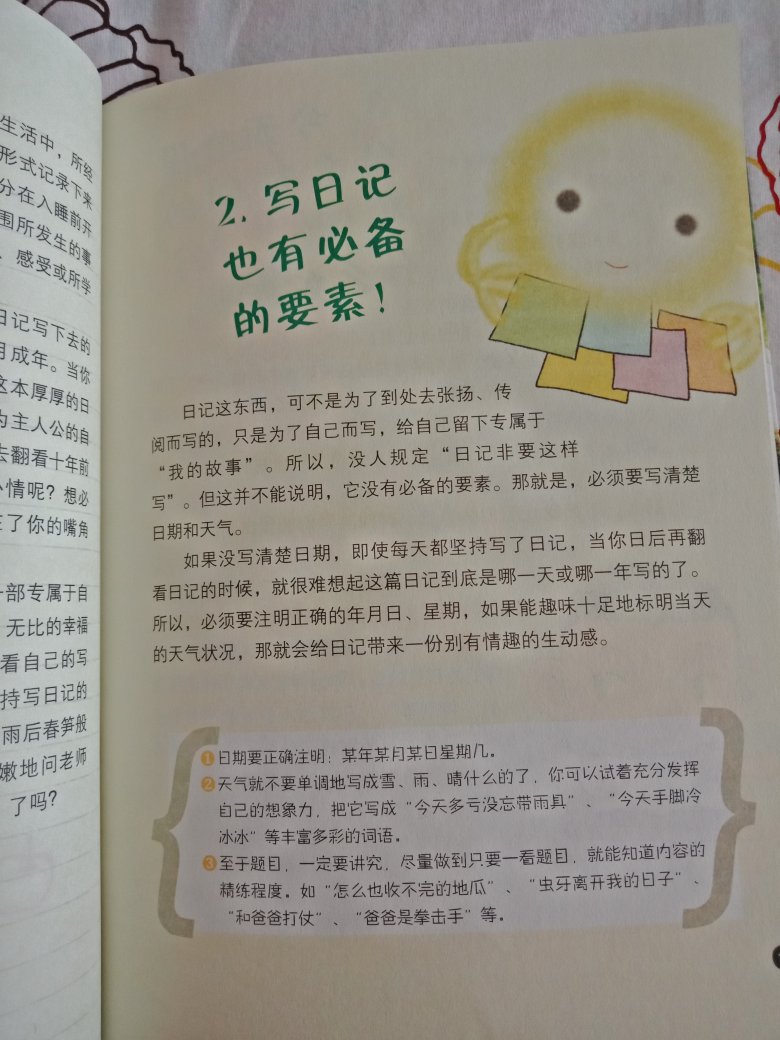 生活中，所经
形式记录下来
分在入睡前开
围所发生的事
、感受或所学
日记写下去的
月成年。当你
这本厚厚的日
为主人公的自
去翻看十年前
心情呢？想必
在了你的嘴角
一部专属于自
无比的幸福
看自己的写
持写日记的
雨后春笋般
嫩地问老师
了吗？
2. 写日记
也有必备
的要素！
日记这东西，可不是为了到处去张扬、传
阅而写的，只是为了自己而写，给自己留下专属于
“我的故事”。所以，没人规定“日记非要这样
写”。但这并不能说明，它没有必备的要素。那就是，必须要写清楚
日期和天气。
如果没写清楚日期，即使每天都坚持写了日记，当你日后再翻
看日记的时候，就很难想起这篇日记到底是哪一天或哪一年写的了。
所以，必须要注明正确的年月日、星期，如果能趣味十足地标明当天
的天气状况，那就会给日记带来一份别有情趣的生动感。
❶日期要正确注明：某年某月某日星期几。
❷天气就不要单调地写成雪、雨、晴什么的了，你可以试着充分发挥
自己的想象力，把它写成“今天多亏没忘带雨具”、“今天手脚冷
冰冰”等丰富多彩的词语。
❸至于题目，一定要讲究，尽量做到只要一看题目，就能知道内容的
精练程度。如“怎么也收不完的地瓜”、“虫牙离开我的日子”、
“和爸爸打仗”、“爸爸是拳击手”等。